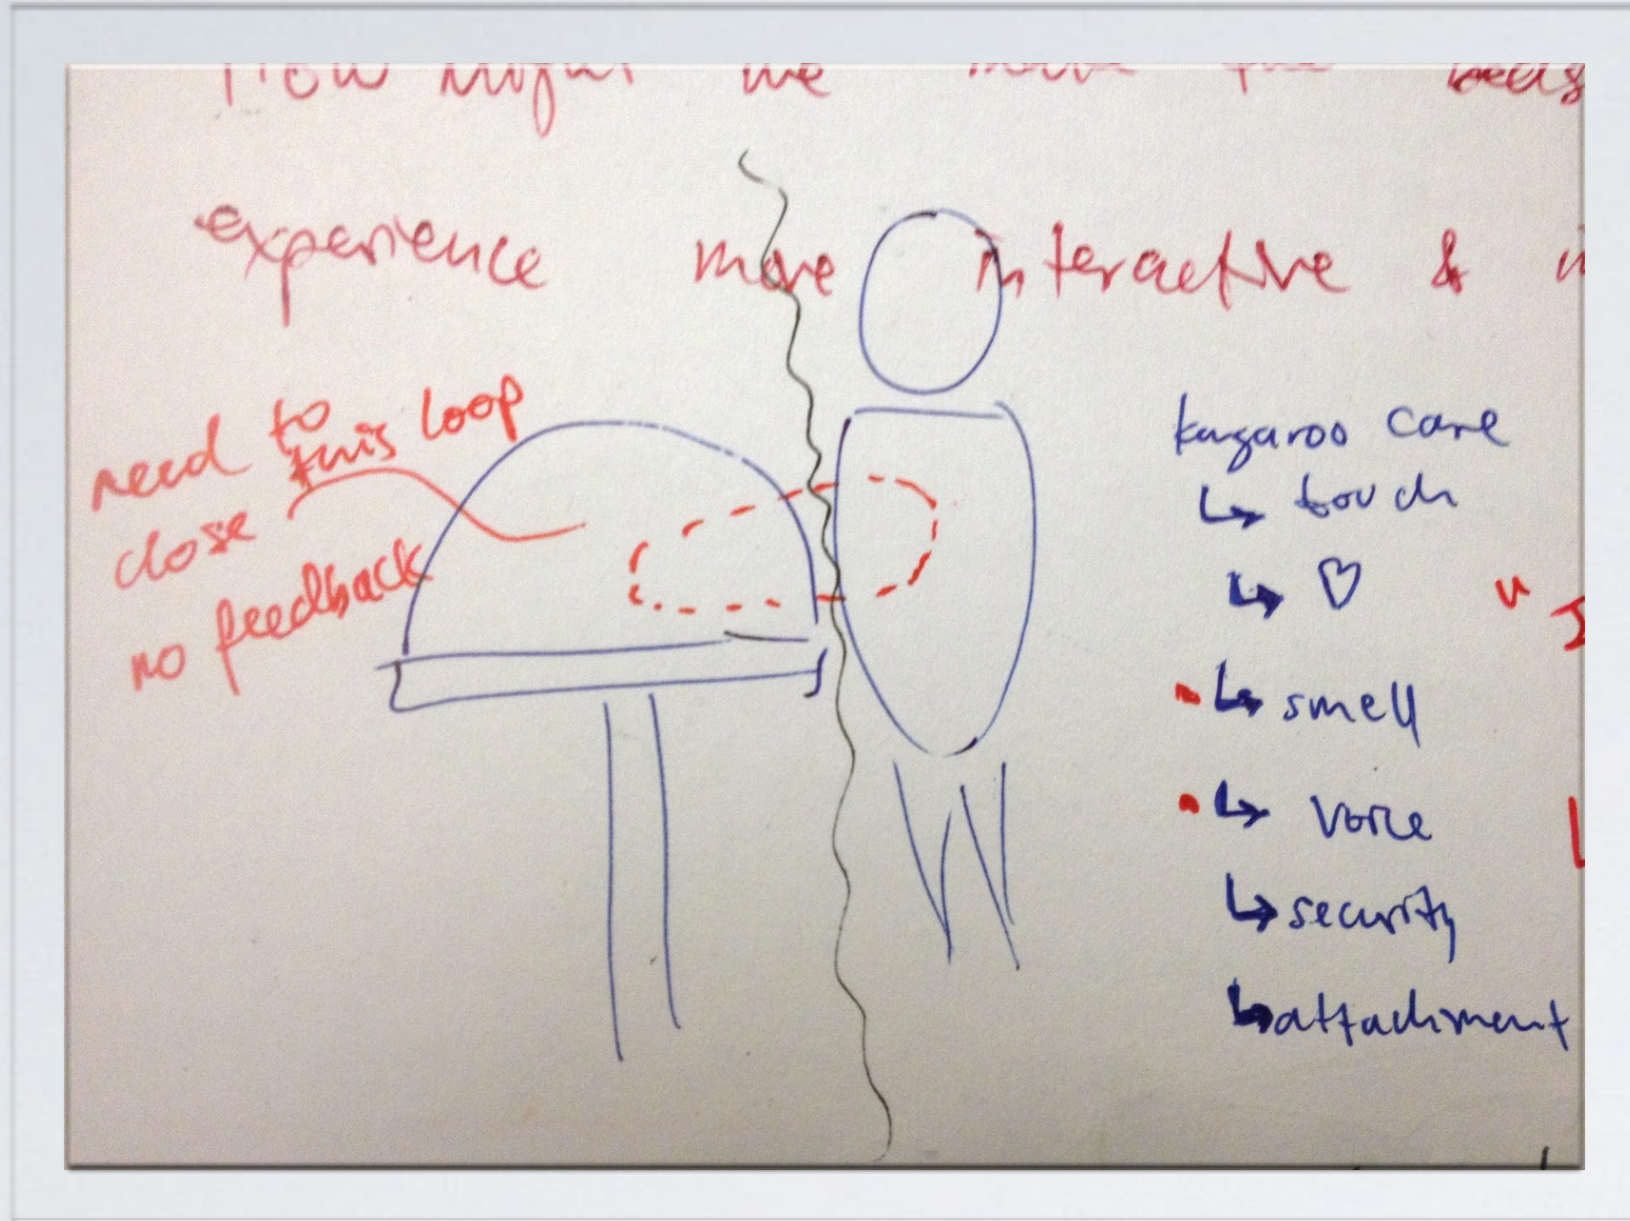 How might we make the
experience more interactive &
need to
close this loop
no feedback
kagaroo care
↳ touch
↳ ♡
↳ smell
↳ voice
↳ security
↳ attachment